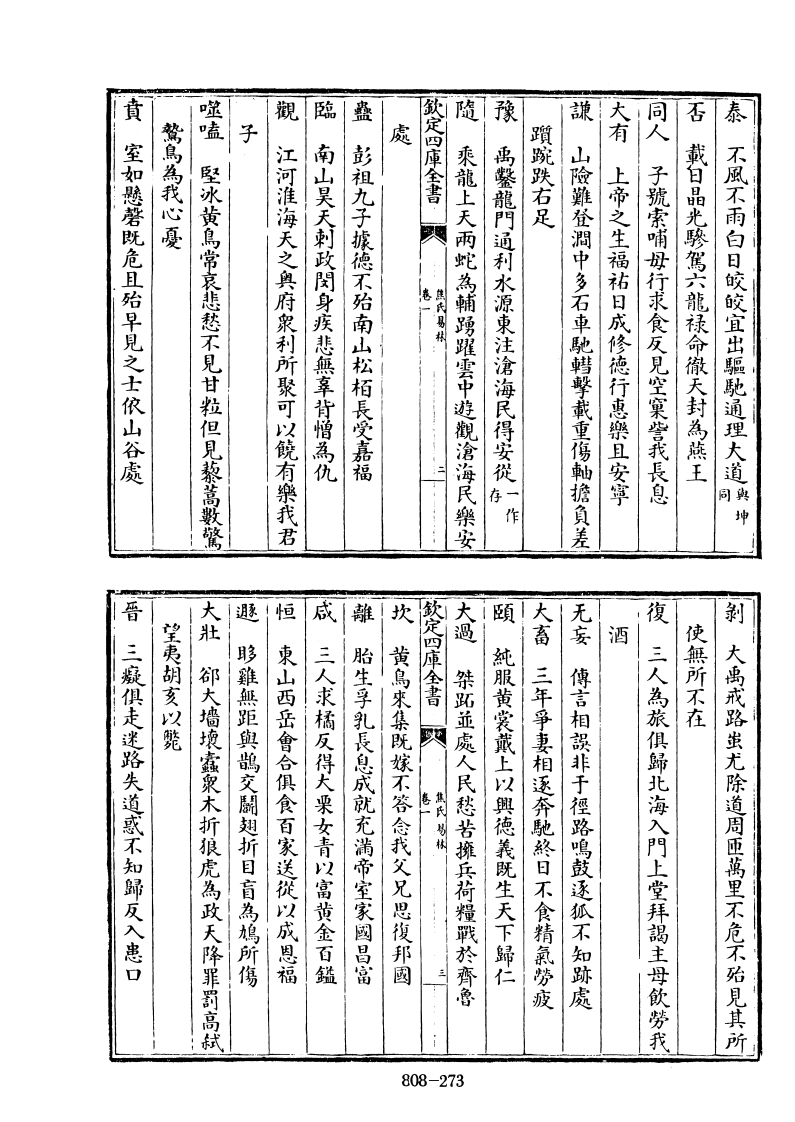 泰　不風不雨白日皎皎宜出驅馳通理大道與坤同
否　載日晶光驂駕六龍禄命徹天封為燕王
同人　子號索哺母行求食反見空窠訾我長息
大有　上帝之生福祐日成修德行惠樂且安寧
謙　山險難登澗中多石車馳轊擊載重傷軸擔負差
躓踠跌右足
豫　禹鑿龍門通利水源東注滄海民得安從一作存
隨　乘龍上天兩蛇為輔踴躍雲中遊觀滄海民樂安
欽定四庫全書　焦氏易林卷一　二
處
蠱　彭祖九子據德不殆南山松栢長受嘉福
臨　南山昊天刺政閔身疾悲無辜背憎為仇
觀　江河淮海天之奥府衆利所聚可以饒有樂我君
子
噬嗑　堅冰黄鳥常哀悲愁不見甘粒但見藜蒿數驚
鷙鳥為我心憂
賁　室如懸磬既危且殆早見之士依山谷處
剝　大禹戒路蚩尤除道周匝萬里不危不殆見其所
使無所不在
復　三人為旅俱歸北海入門上堂拜謁主母飲勞我
酒
无妄　傳言相誤非于徑路鳴鼓逐狐不知跡處
大畜　三年爭妻相逐奔馳終日不食精氣勞疲
頤　純服黄裳戴上以興德義既生天下歸仁
大過　桀跖並處人民愁苦擁兵荷糧戰於齊魯
欽定四庫全書　焦氏易林卷一　三
坎　黄鳥來集既嫁不答念我父兄思復邦國
離　胎生孚乳長息成就充滿帝室家國昌富
咸　三人求橘反得大栗女青以富黄金百鎰
恒　東山西岳會合俱食百家送從以成恩福
遯　眵雞無距與鵲交鬭翅折目盲為鳩所傷
大壯　郤大墻壞蠹衆木折狼虎為政天降罪罰高弒
望夷胡亥以斃
晉　三癡俱走迷路失道惑不知歸反入患口
808-273